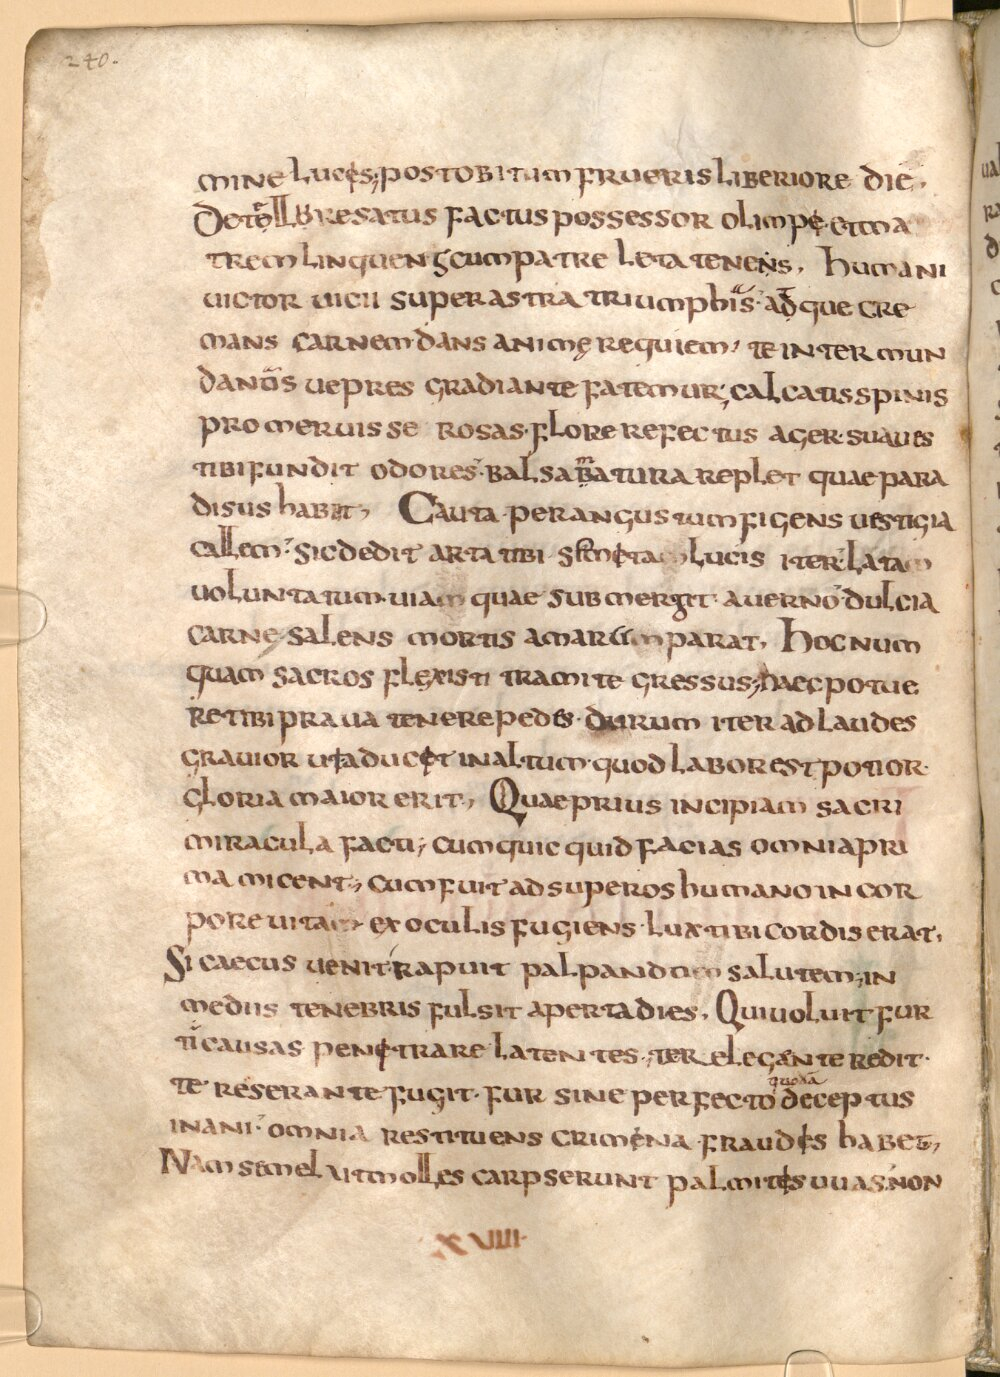 240.
mine luces; post obitum frueris liberiore die,
De tellure satus factus possessor olimpe et ma
trem linquens cum patre leta tenens, humani
uictor uicii super astra triumphis adque cre
mans carnem dans anime requiem, te inter mun
dantis uepres gradiante fatemur, calcatis spinis
promeruisse rosas. flore refectus ager suaues
tibi fundit odores. balsama tura replet quae para
disus habet, Cauta per angustum figens uestigia
callem. sic dedit arta tibi semeta lucis iter. latam
voluntatum uiam quae submergit auerno. dulcia
carne salens mortis amara parat, hoc num
quam sacros flexisti tramite gressus, haec potue
re tibi praua tenere pedes. durum iter ad laudes
grauior uia ducet in altum. quod labor est potior.
gloria maior erit, Quae prius incipiam sacri
miracula facti; cum quic quid facias omnia pri
ma micent, cum fuit ad superos humano in cor
pore uitam ex oculis fugiens. lux tibi cordis erat,
Si caecus uenit rapuit palpandum salutem; in
mediis tenebris fulsit aperta dies, Qui uoluit fur
ti causas penetrare latentes, ter elegante redit.
te reserante fugit. fur sine perfecto deceptus
quodã
inani. omnia restituens crimena fraudes habet,
Nam semel ut molles carpserunt palmites uuas. non
XVIIII.